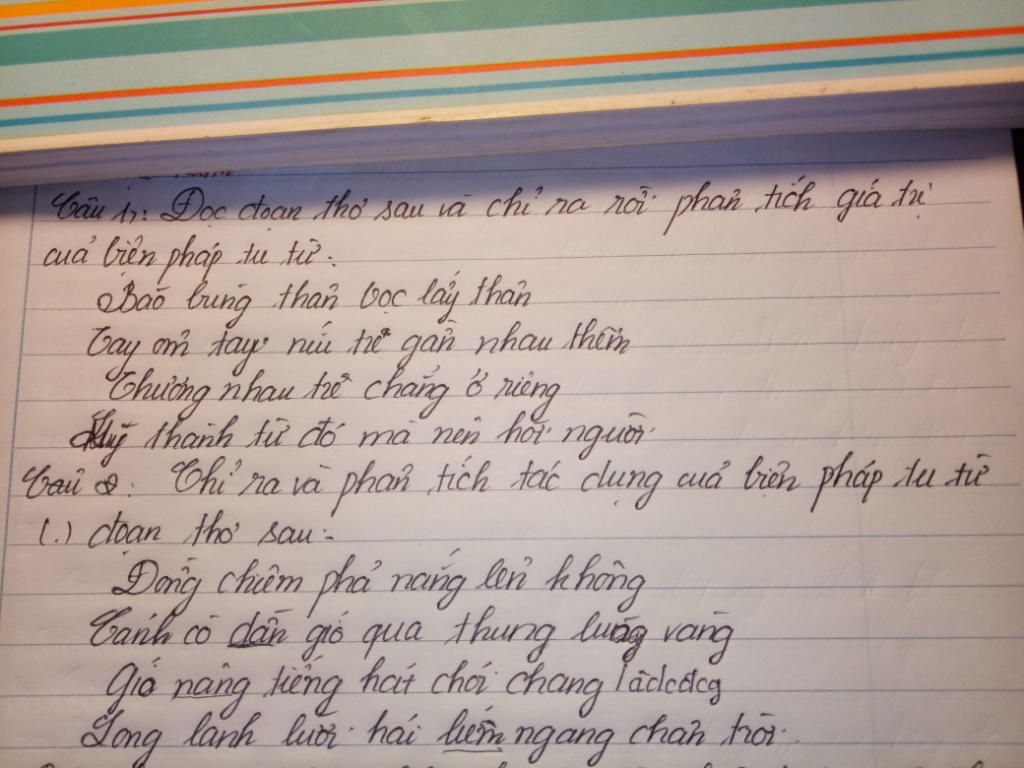 Câu 1: Đọc đoạn thơ sau và chỉ ra rồi phân tích giá trị
của biện pháp tu từ:
Bão bùng thân bọc lấy thân
Tay ôm tay níu tre gần nhau thêm
Thương nhau tre chẳng ở riêng
Luỹ thành từ đó mà nên hỡi người
Câu 2: Chỉ ra và phân tích tác dụng của biện pháp tu từ
(.) đoạn thơ sau:
Đồng chiêm phả nắng lên không
Cánh cò dẫn gió qua thung lúa vàng
Gió nâng tiếng hát chói chang
Long lanh lưỡi hái liếm ngang chân trời.